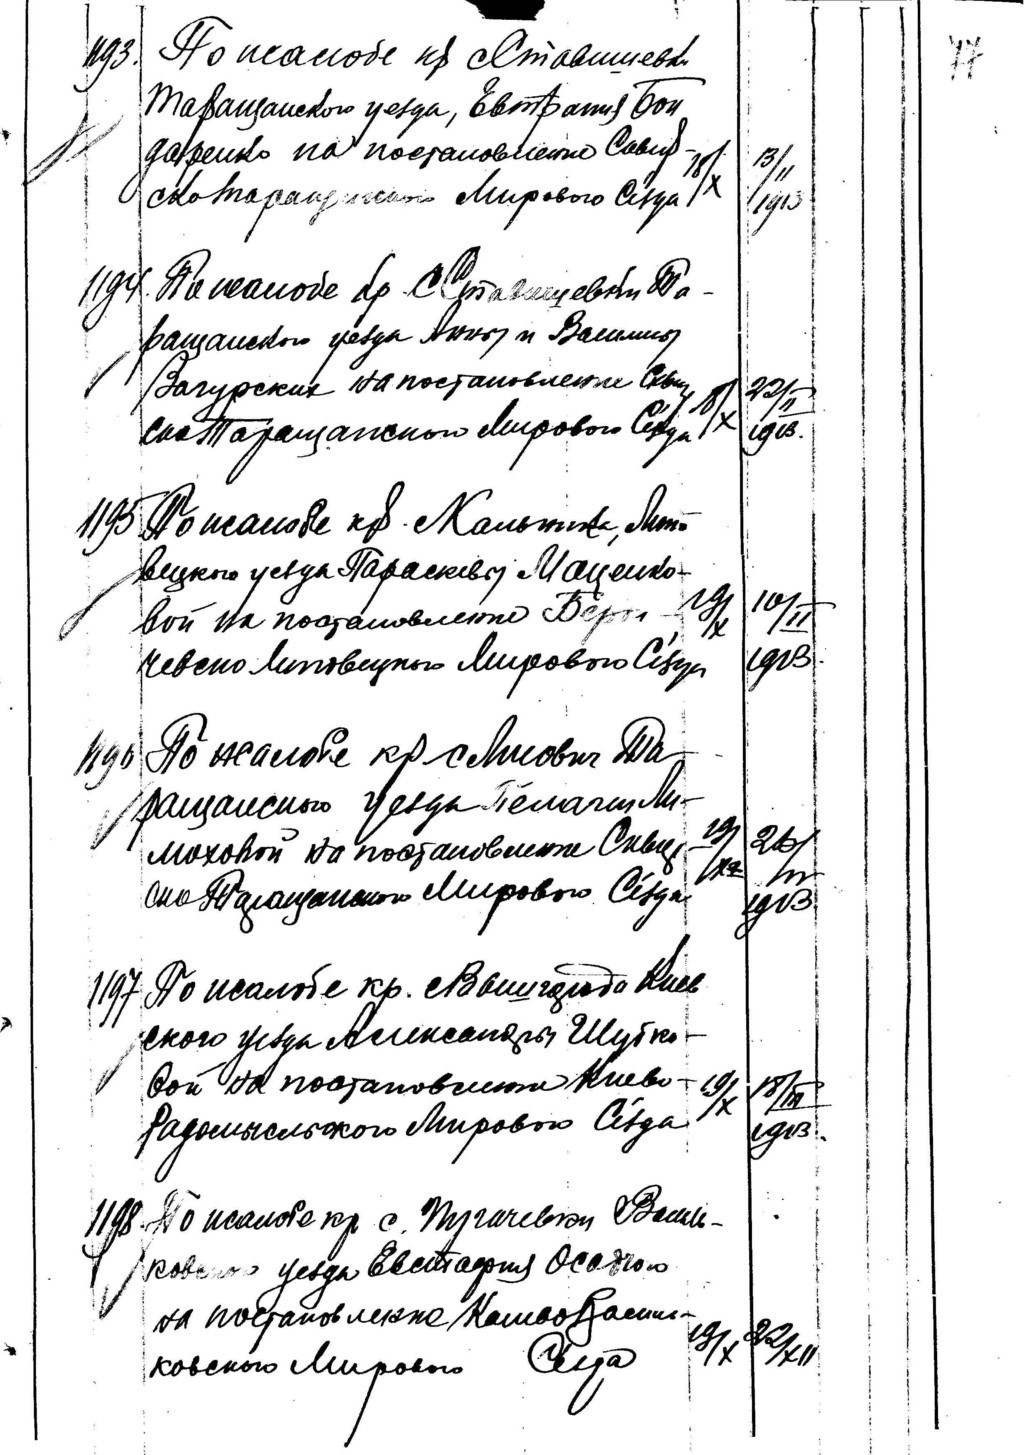 77
1193. По жалобе кр с Ставищевки
Таращанского уезда, Евтрапия Бон
даренко на постановление Сквир-
ско Таращанского Мирового Съезда 18/X 13/II 1913
1194. По жалобе кр. С Ставищевки Та-
ращанского уезда Анны и Василия
Загурских на постановление Сквир
ско Таращанского Мирового Съезда 18/X 22/II 1913.
1195 По жалобе кр. с Кальника, Липо-
вецкого уезда Параскевы Маценко-
вой на постановление Берди-
чевско Липовецкого Мирового Съезда 19/X 10/II 1913.
1196 По жалобе кр с Лисович Та-
ращанского уезда Ли-
моховой на постановление Сквир
ско Таращанского Мирового Съезда 19/X 1913
1197 По жалобе кр. с Вышгорода Киев
ского уезда Александры Шутко-
вой на постановление Киево-
Радомысльского Мирового Съезда 19/X 18/III 1913.
1198. По жалобе кр с. Пугачевки Василь-
ковского уезда Евстафия
на постановление Киево Василь-
ковского Мирового Съезда 19/X 22/XII